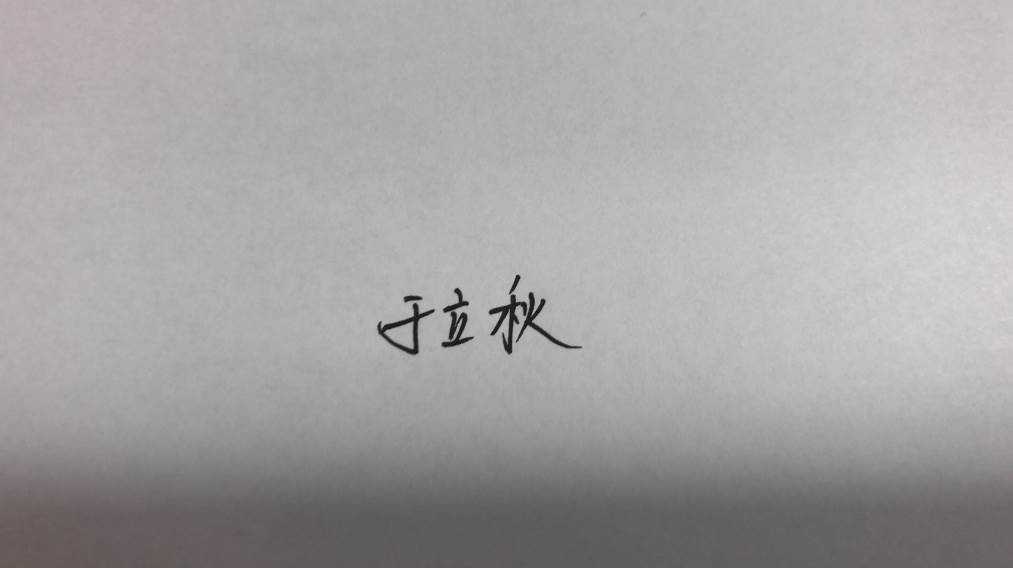 于立秋